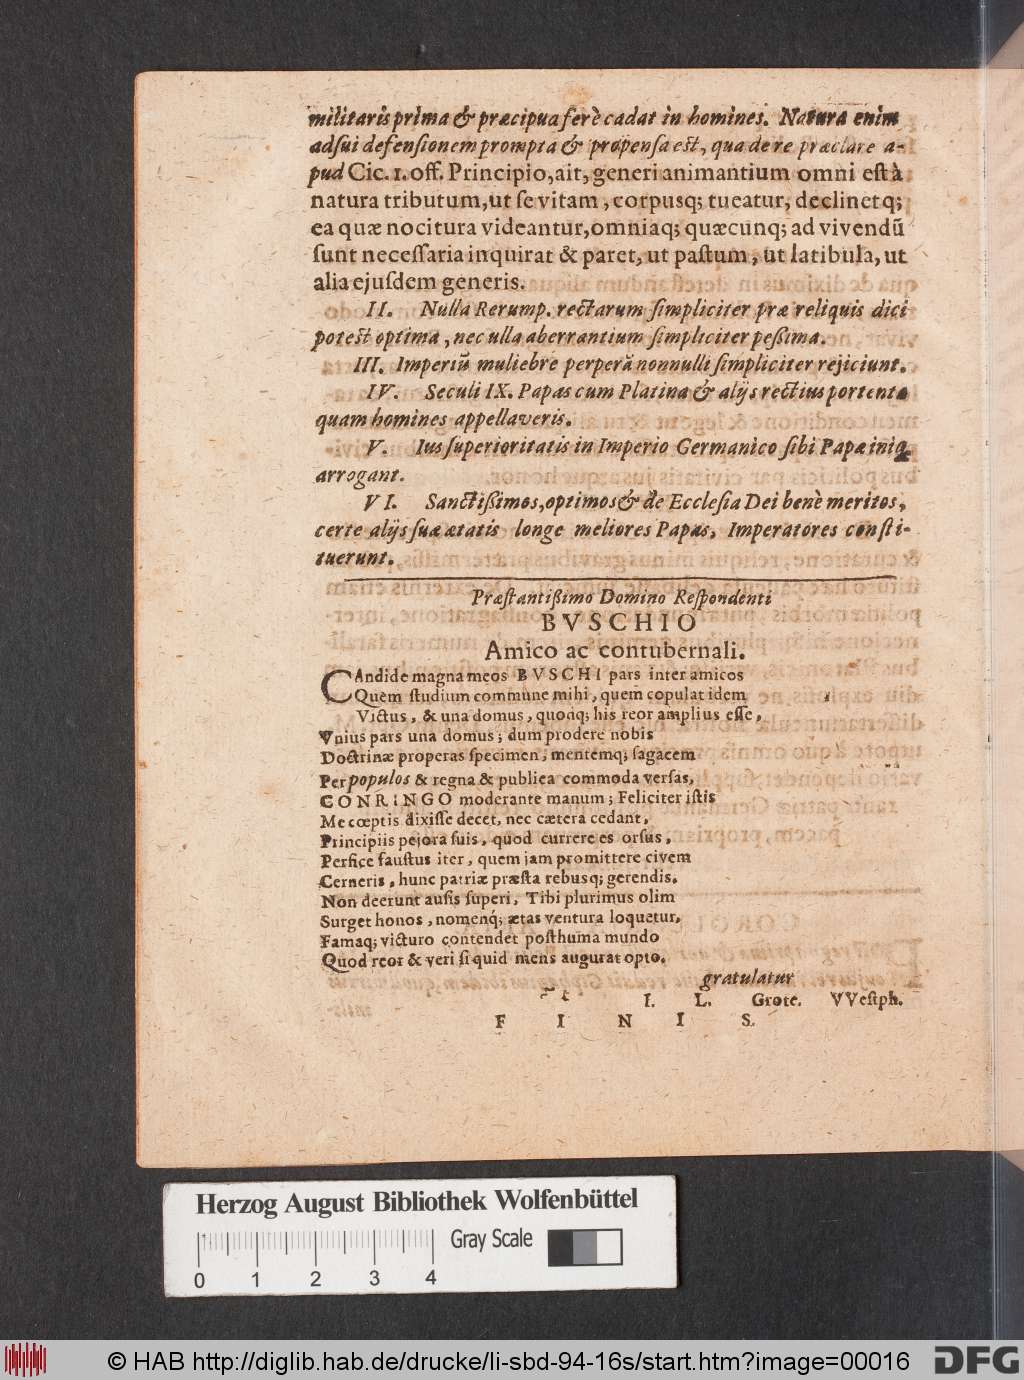 militaris prima & præcipua ferè cadat in homines. Natura enim
ad sui defensionem prompta & propensa est, qua de re præclare a-
pud Cic. 1. off. Principio, ait, generi animantium omni est à
natura tributum, ut se vitam, corpusq; tueatur, declinetq;
ea quæ nocitura videantur, omniaq; quæcunq; ad vivendũ
sunt necessaria inquirat & paret, ut pastum, ut latibula, ut
alia ejusdem generis.
II. Nulla Rerump. rectarum simpliciter præ reliquis dici
potest optima, nec ulla aberrantium simpliciter pessima.
III. Imperiũ muliebre perperã nonnulli simpliciter rejiciunt.
IV. Seculi IX. Papas cum Platina & alijs rectius portenta
quam homines appellaveris.
V. Ius superioritatis in Imperio Germanico sibi Papæ iniq
arrogant.
VI. Sanctissimos, optimos & de Ecclesia Dei benè meritos,
certe alijs suæ ætatis longe meliores Papas, Imperatores consti-
tuerunt.
Præstantissimo Domino Respondenti
BVSCHIO
Amico ac contubernali.
CAndide magna meos BVSCHI pars inter amicos
Quem studium commune mihi, quem copulat idem
Victus, & una domus, quodq; his reor amplius esse,
Vnius pars una domus; dum prodere nobis
Doctrinæ properas specimen, mentemq; sagacem
Per populos & regna & publica commoda versas,
CONRINGO moderante manum; Feliciter istis
Me cœptis dixisse decet, nec cætera cedant,
Principiis pejora suis, quod currere es orsus,
Perfice faustus iter, quem jam promittere civem
Cerneris, hunc patriæ præsta rebusq; gerendis.
Non deerunt ausis superi, Tibi plurimus olim
Surget honos, nomenq́; ætas ventura loquetur,
Famaq; victuro contendet posthuma mundo
Quod reor & veri si quid mens augurat opto.
gratulatur
I. L. Grote. VVestph.
F I N I S.
Herzog August Bibliothek Wolfenbüttel
Gray Scale
0 1 2 3 4
© HAB http://diglib.hab.de/drucke/li-sbd-94-16s/start.htm?image=00016
DFG